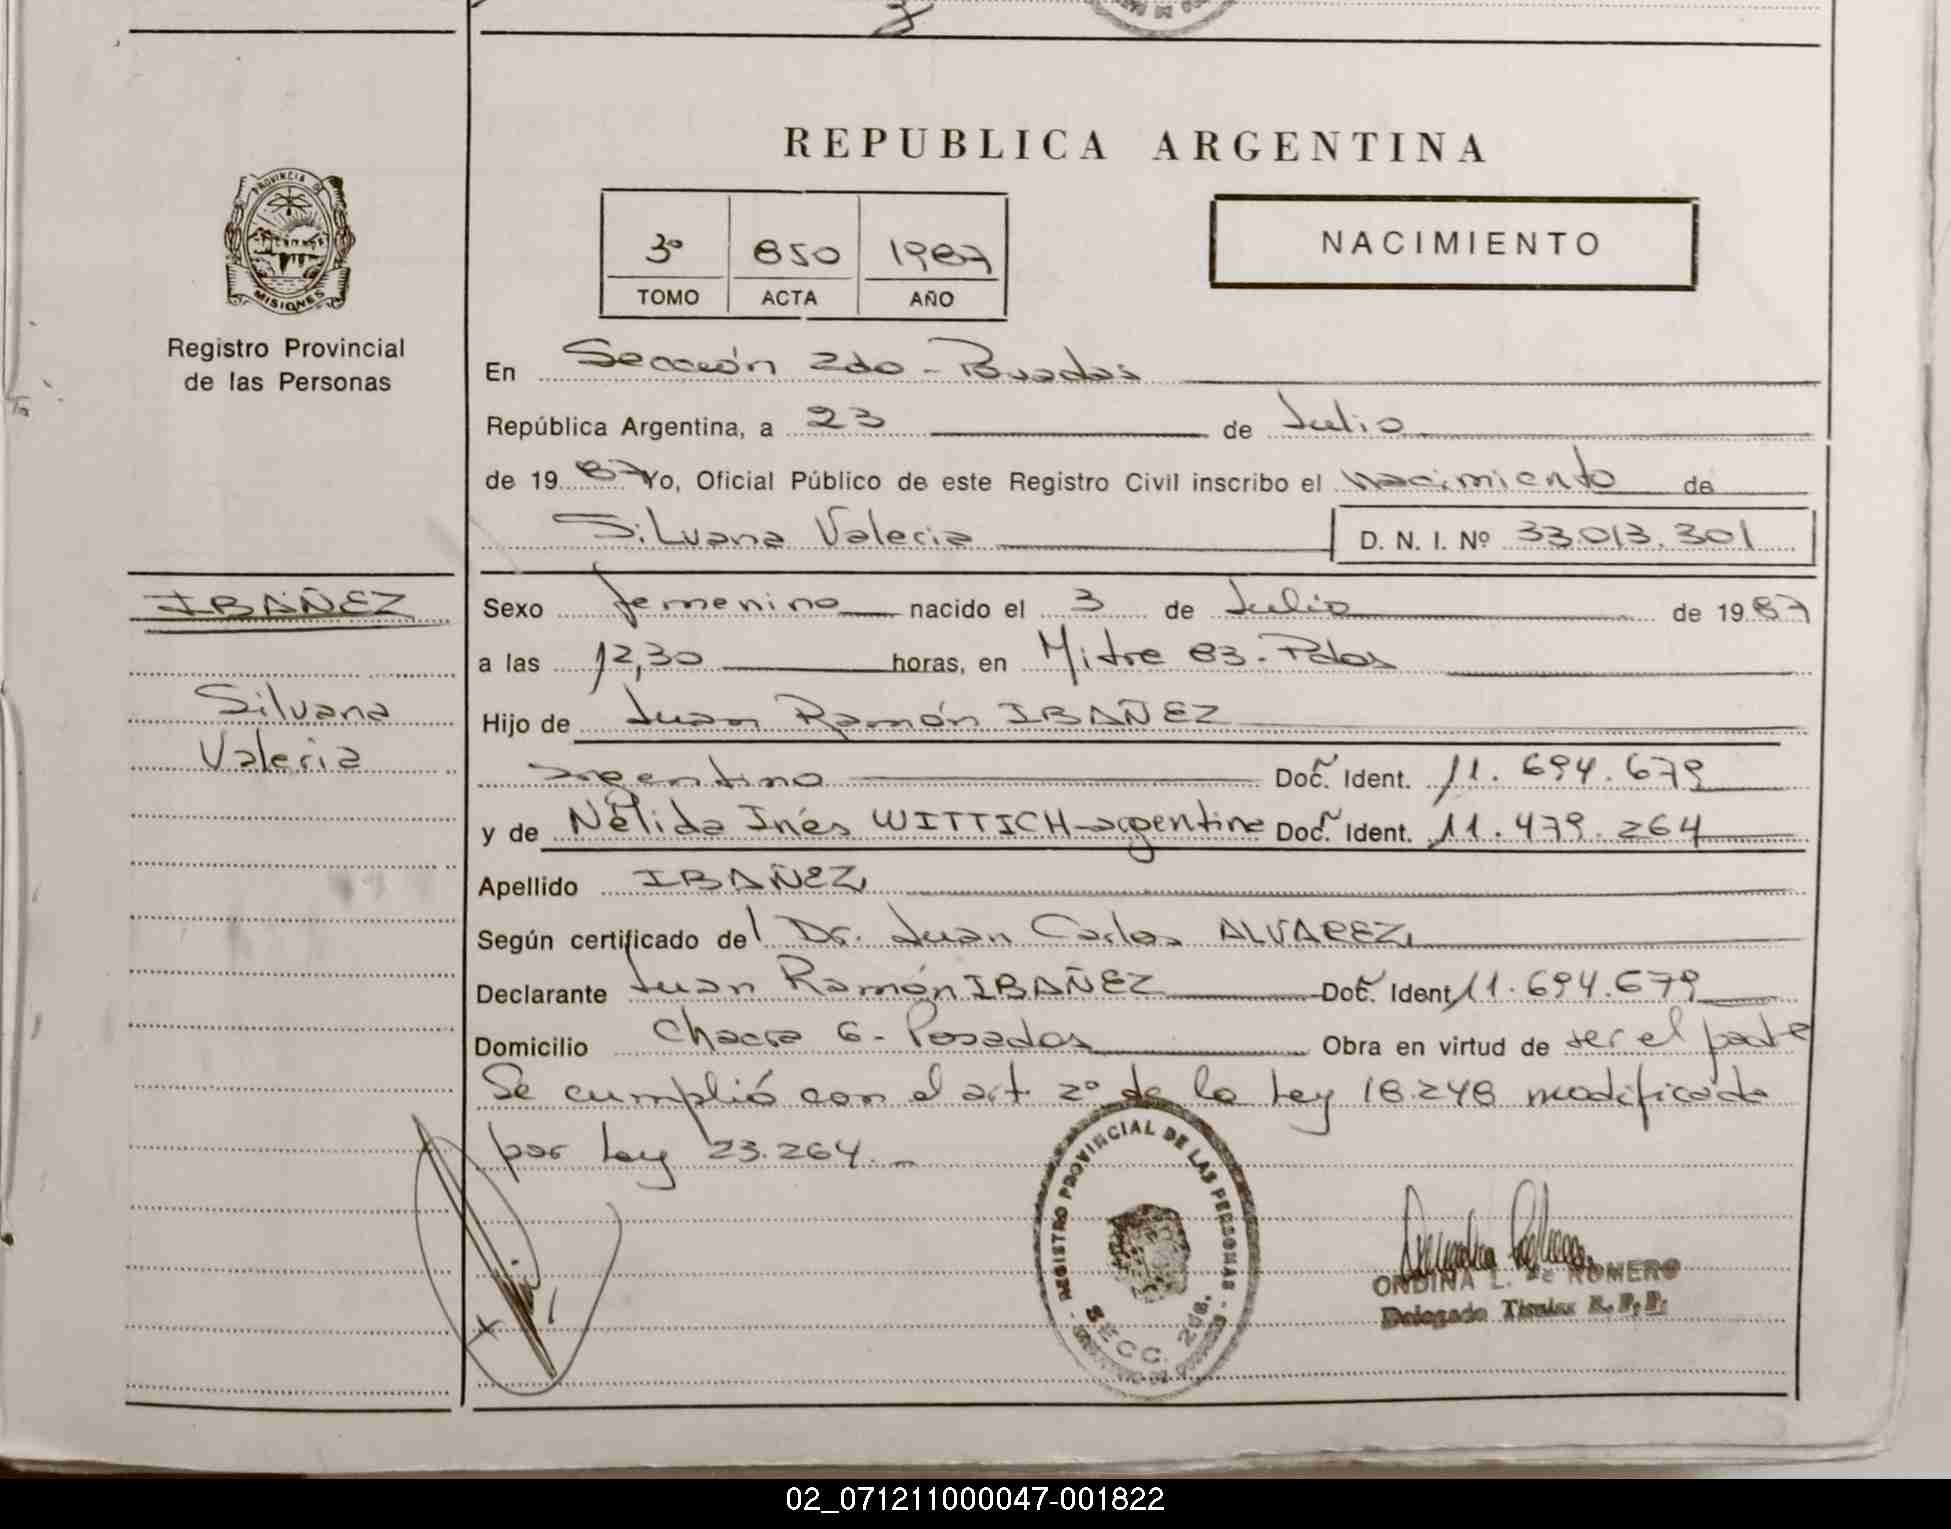 REPUBLICA ARGENTINA
PROVINCIA DE
MISIONES
Registro Provincial
de las Personas
3º 850 1987
TOMO ACTA AÑO
NACIMIENTO
En Sección 2da - Posadas
República Argentina, a 23 de Julio
de 1987 Yo, Oficial Público de este Registro Civil inscribo el nacimiento de
Silvana Valeria D. N. I. Nº 33.013.301
IBAÑEZ
Silvana
Valeria
Sexo femenino nacido el 3 de Julio de 1987
a las 12,30 horas, en Mitre 83 - Pdas
Hijo de Juan Ramón IBAÑEZ
argentino Doc. Ident. 11.694.679
y de Nélida Inés WITTICH - argentina Doc. Ident. 11.479.264
Apellido IBAÑEZ
Según certificado del Dr. Juan Carlos ALVAREZ
Declarante Juan Ramón IBAÑEZ Doc. Ident. 11.694.679
Domicilio Chacra 6 - Posadas Obra en virtud de ser el padre
Se cumplió con el art 2º de la Ley 18.248 modificada
por Ley 23.264.-
REGISTRO PROVINCIAL DE LAS PERSONAS
SECC. 2da.
ONDINA L. de ROMERO
Delegado Titular R. P. P.
02_071211000047-001822